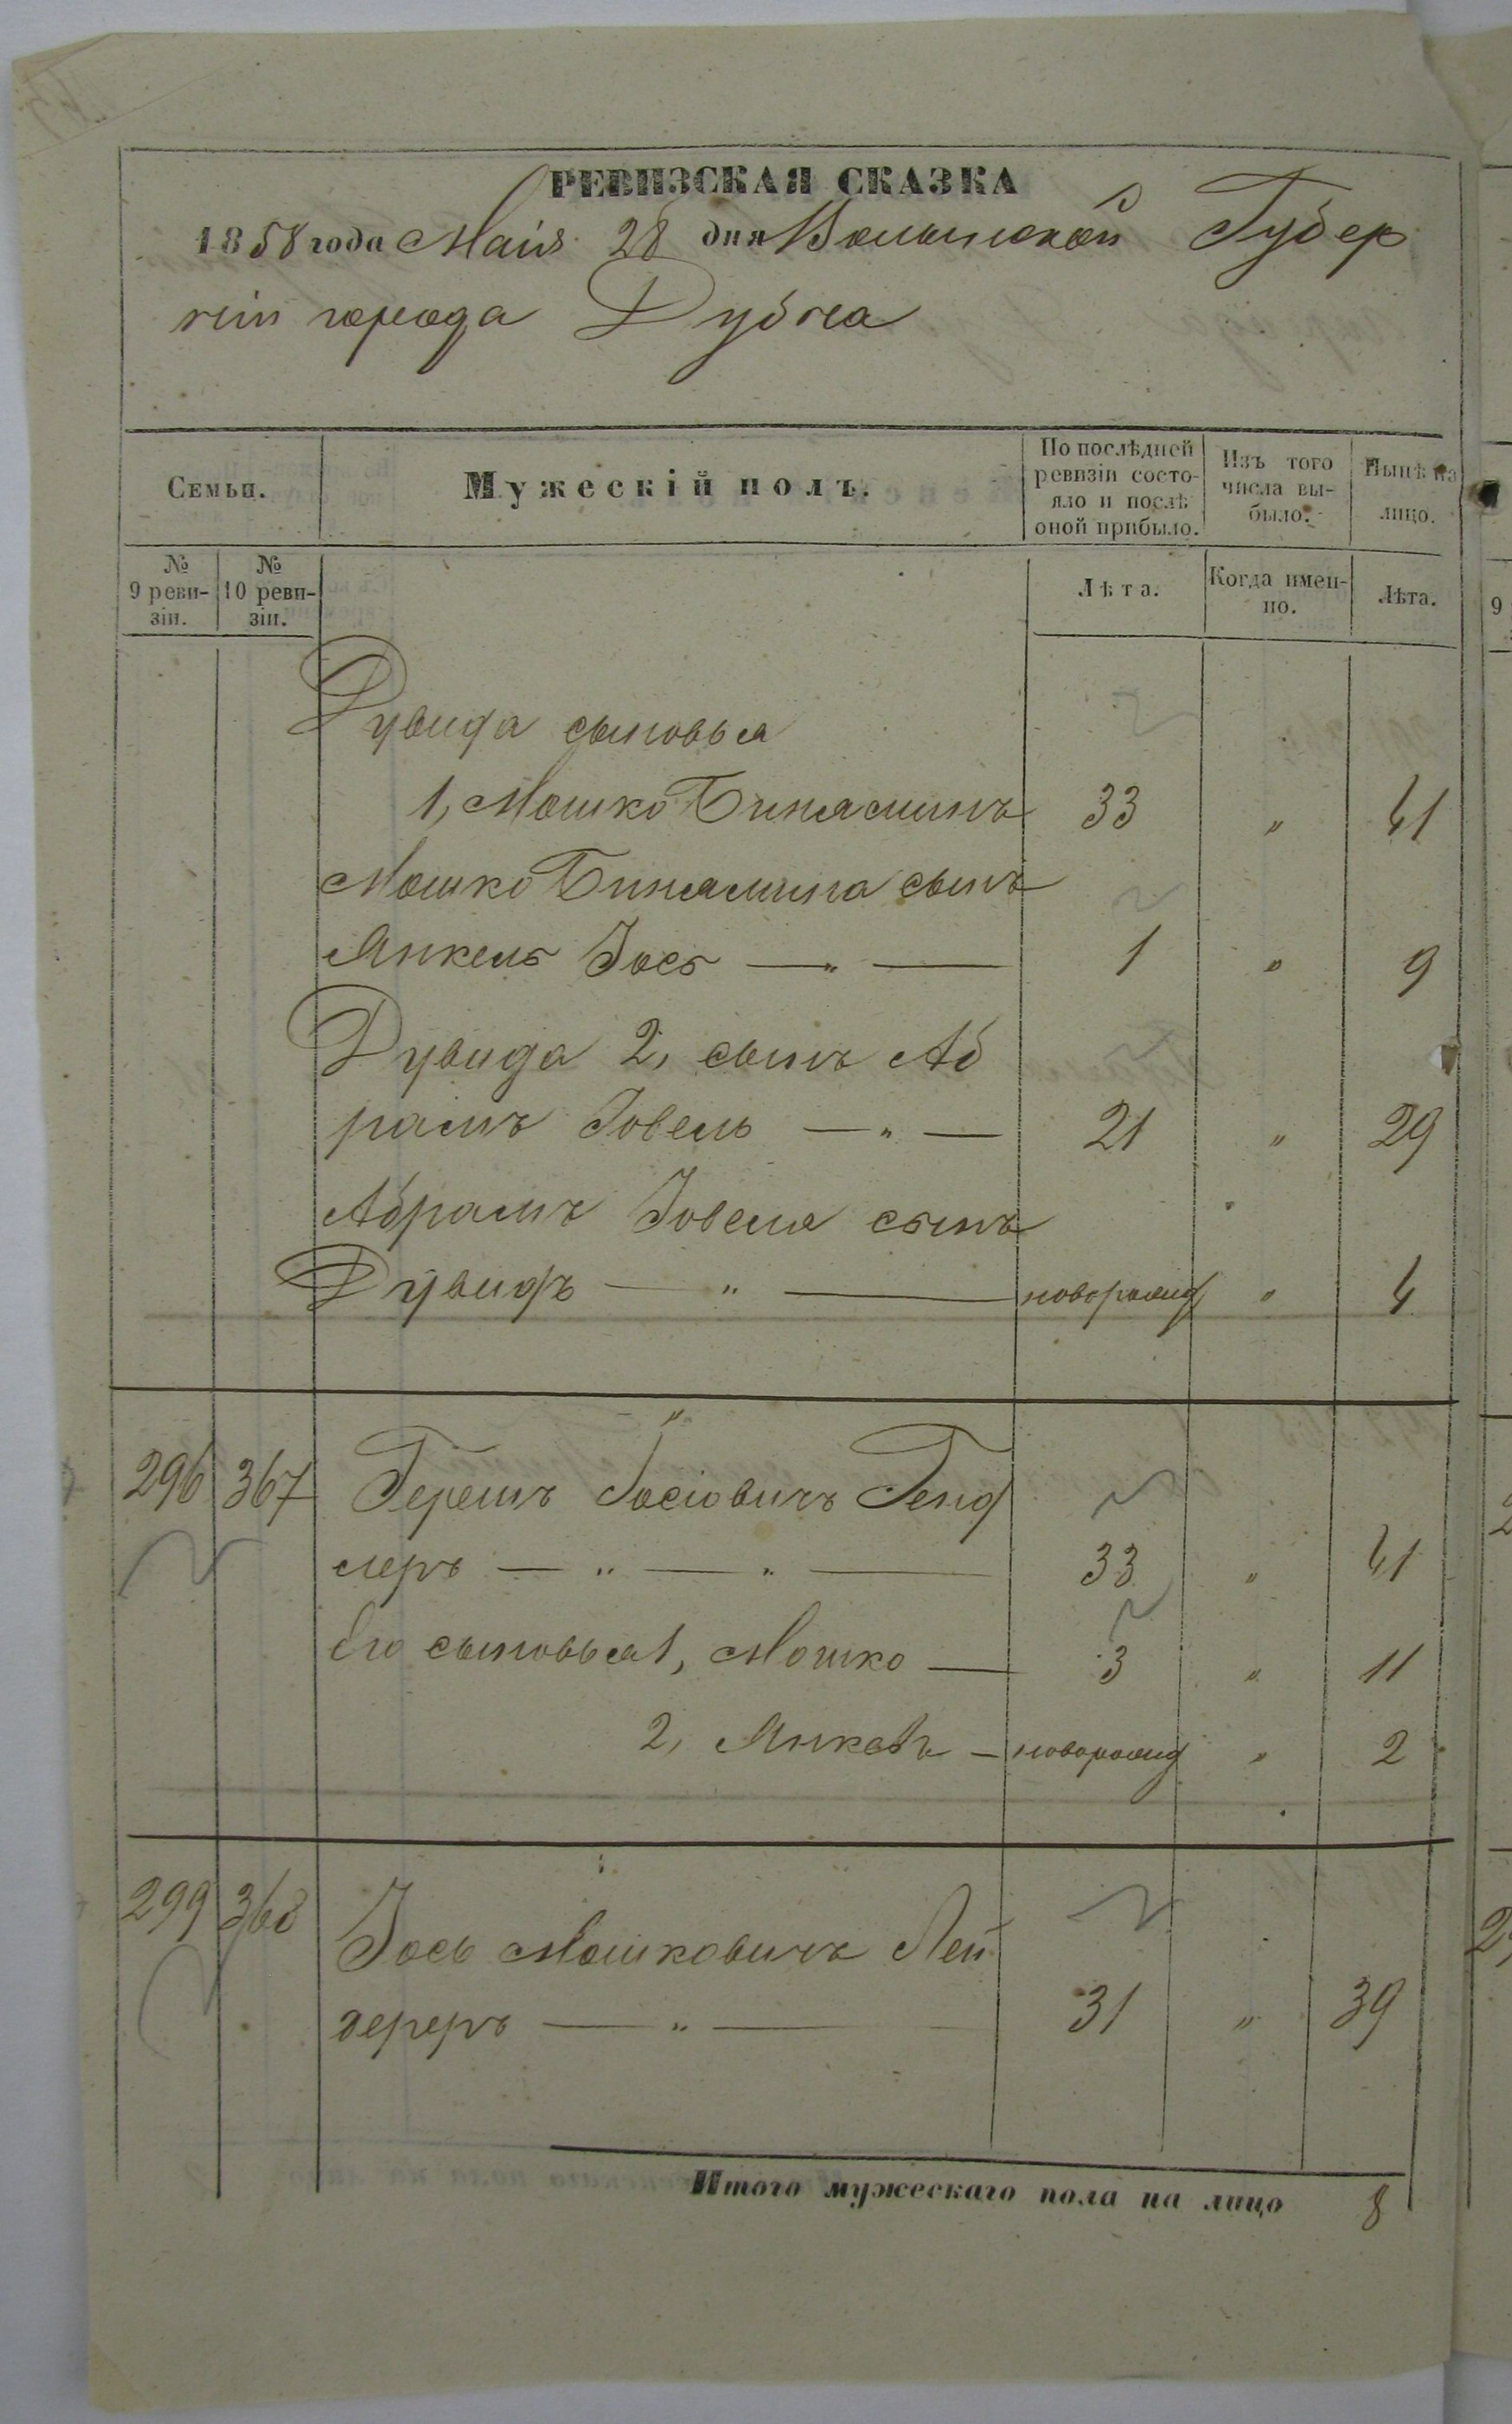 РЕВИЗСКАЯ СКАЗКА
1858 года Маія 28 дня Волынской Губер
ніи города Дубна
Семьи.
Мужескій полъ.
По послѣдней ревизіи состо-
яло и послѣ оной прибыло.
Изъ того числа вы-
было.
Нынѣ на лицо.
№ 9 реви-
зіи.
№ 10 реви-
зіи.
Лѣта.
Когда имен-
но.
Лѣта.
Дувида сыновья
1, Мошко Биняминъ 33 " 41
Мошко Бинямина сынъ
Янкель Іось — " — 1 " 9
Дувида 2, сынъ Аб
рамъ Іовель — " — 21 " 29
Абрамъ Іовеля сынъ
Дувидъ — " — новорожд " 4
296 367 Гершъ Іосіовичъ Генд
леръ — " — " — 33 " 41
Его сыновья 1, Мошко — 3 " 11
2, Янкель — новорожд " 2
299 368 Іось Мошковичъ Лей
дереръ — " — 31 " 39
Итого мужескаго пола на лицо 8